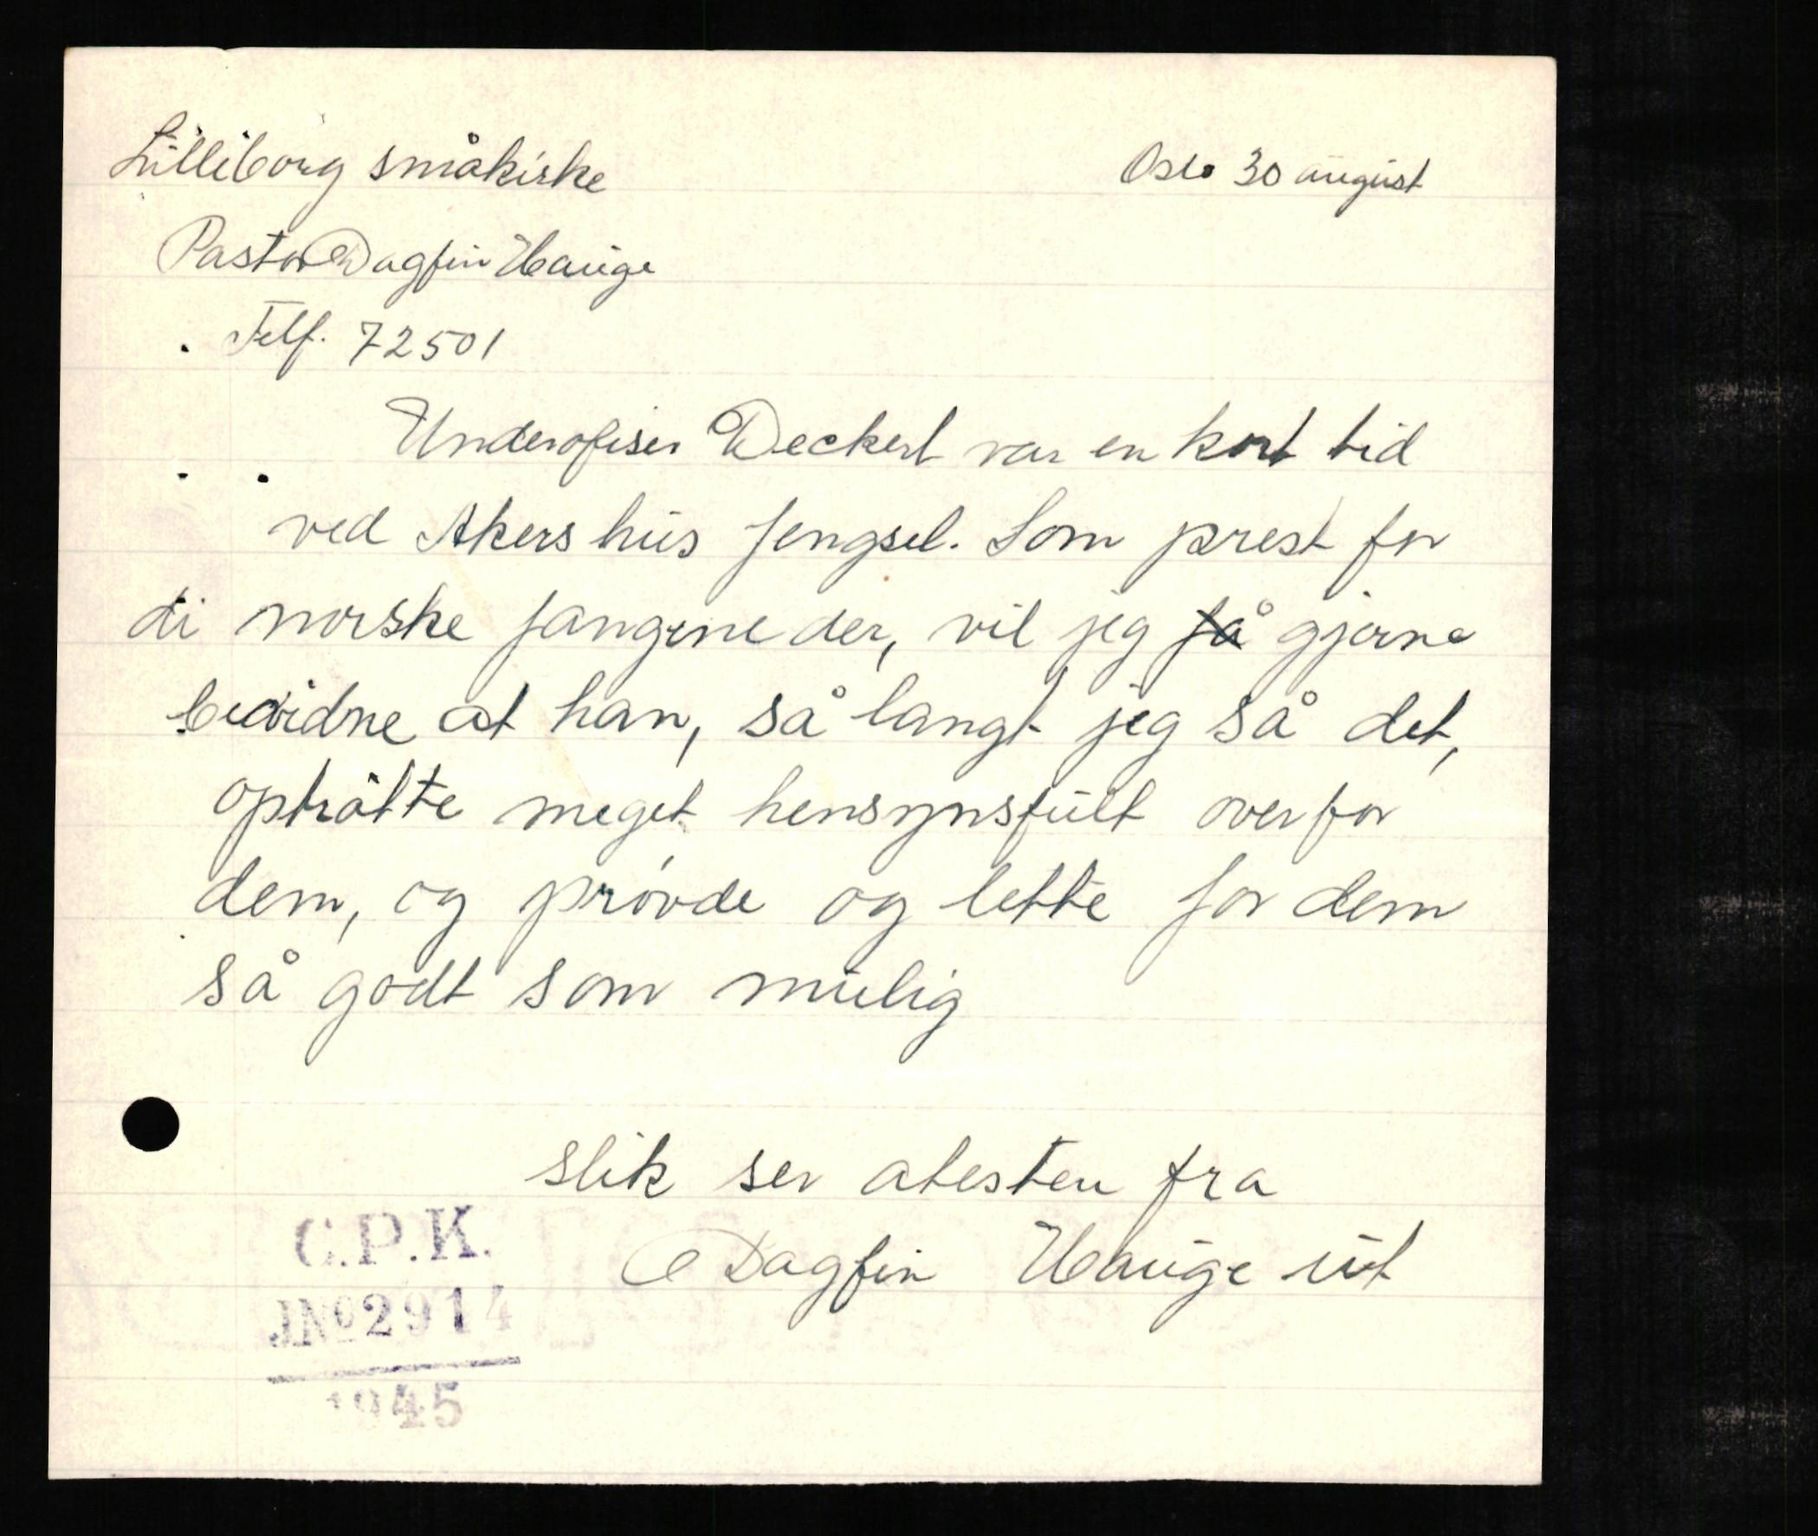 Lilleborg småkirke
Oslo 30 august
Pastor Dagfin Hauge
Telf. 72501
Underofiser Deckert var en kort tid
ved Akershus fengsel. Som prest for
di norske fangene der, vil jeg få gjerne
bevidne at han, så langt jeg så det,
optrötte meget hensynsfult overfor
dem, og prövde og lette for dem
så godt som mulig
slik ser atesten fra
Dagfin Hauge ut
C.P.K.
JNº2914
1945